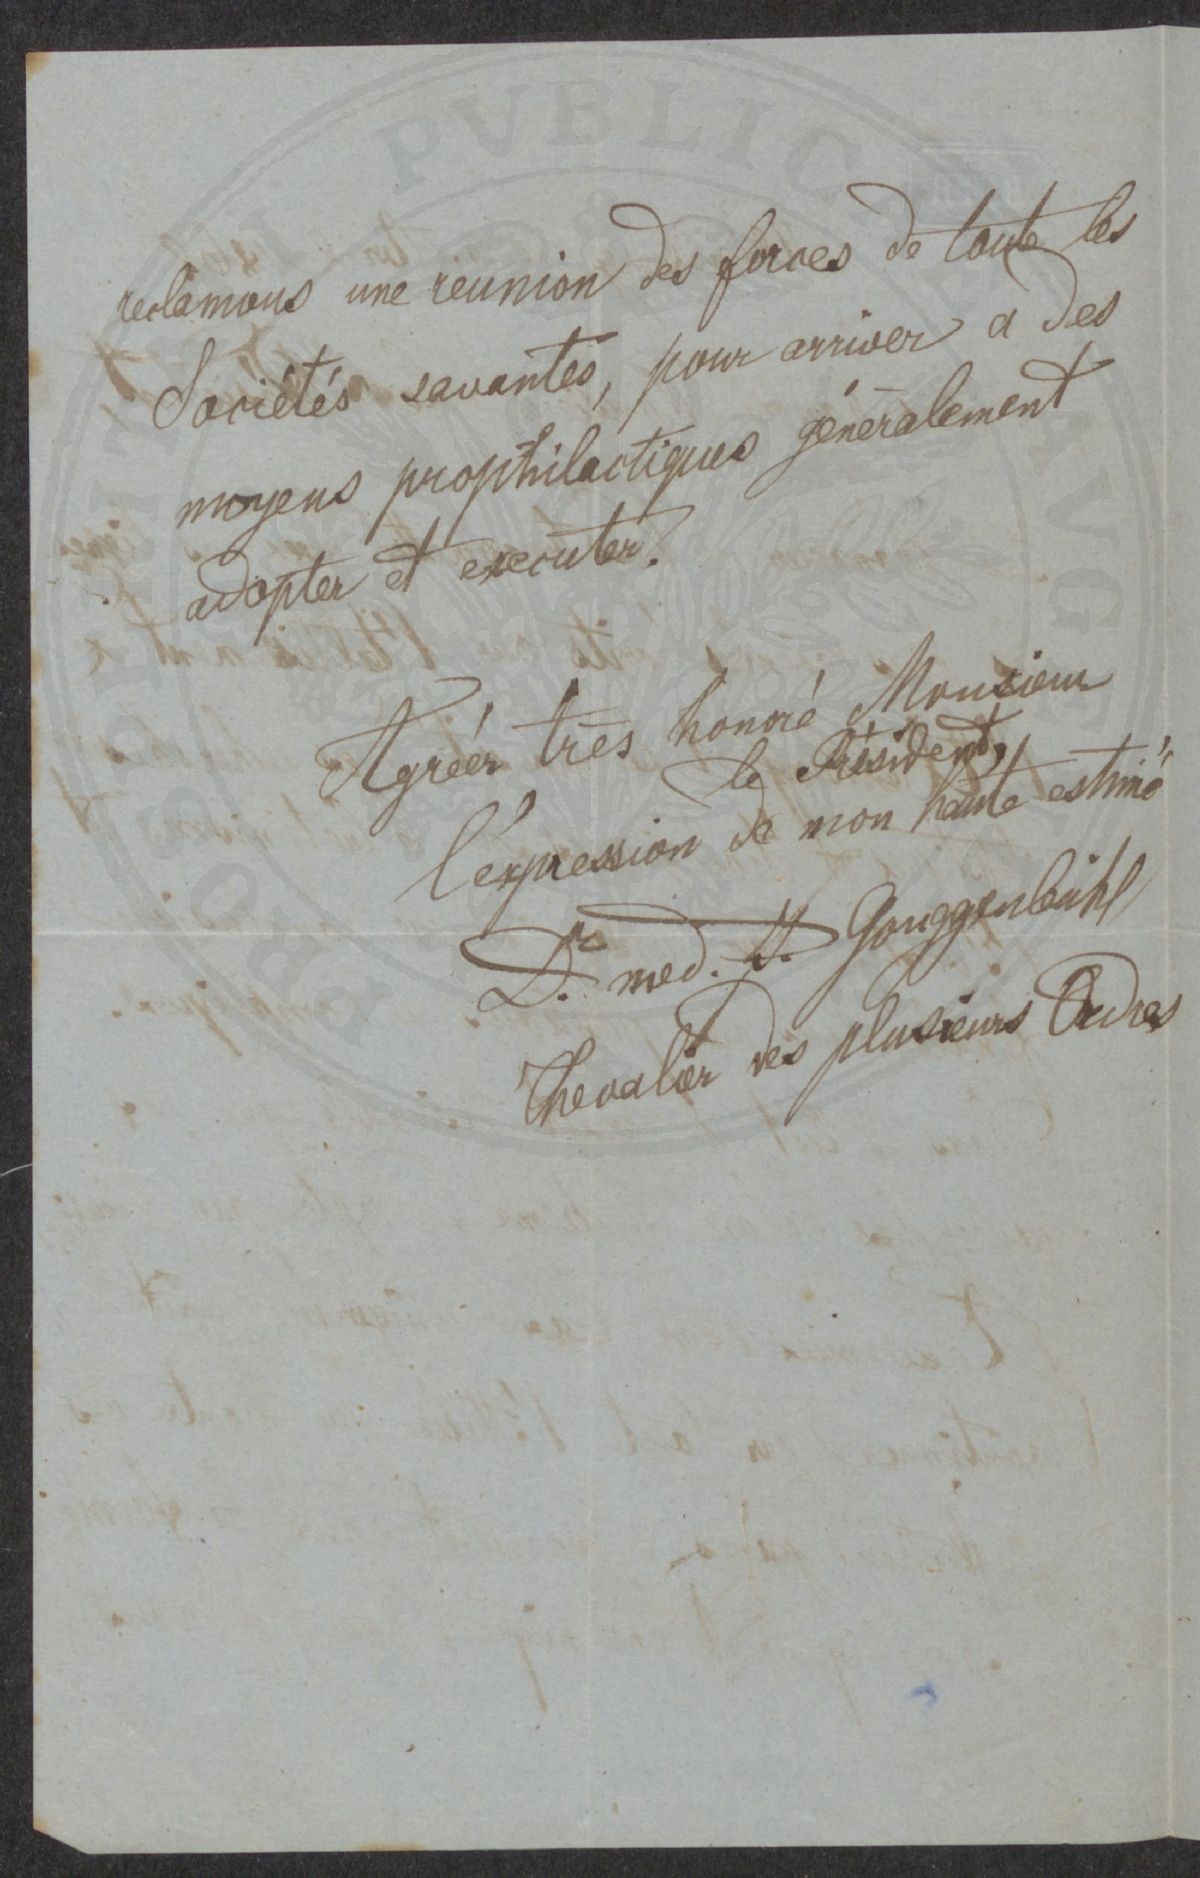 reclamons une reunion des forces de toute les
Sociétés savantes, pour arriver a des
moyens prophilactiques généralement
adopter et executer.
Agréér très honoré Monsieur
le Président,
l'expression de mon haute estime
Dr. med. J. Gouggenbühl
Chevalier des plusieurs Ordres